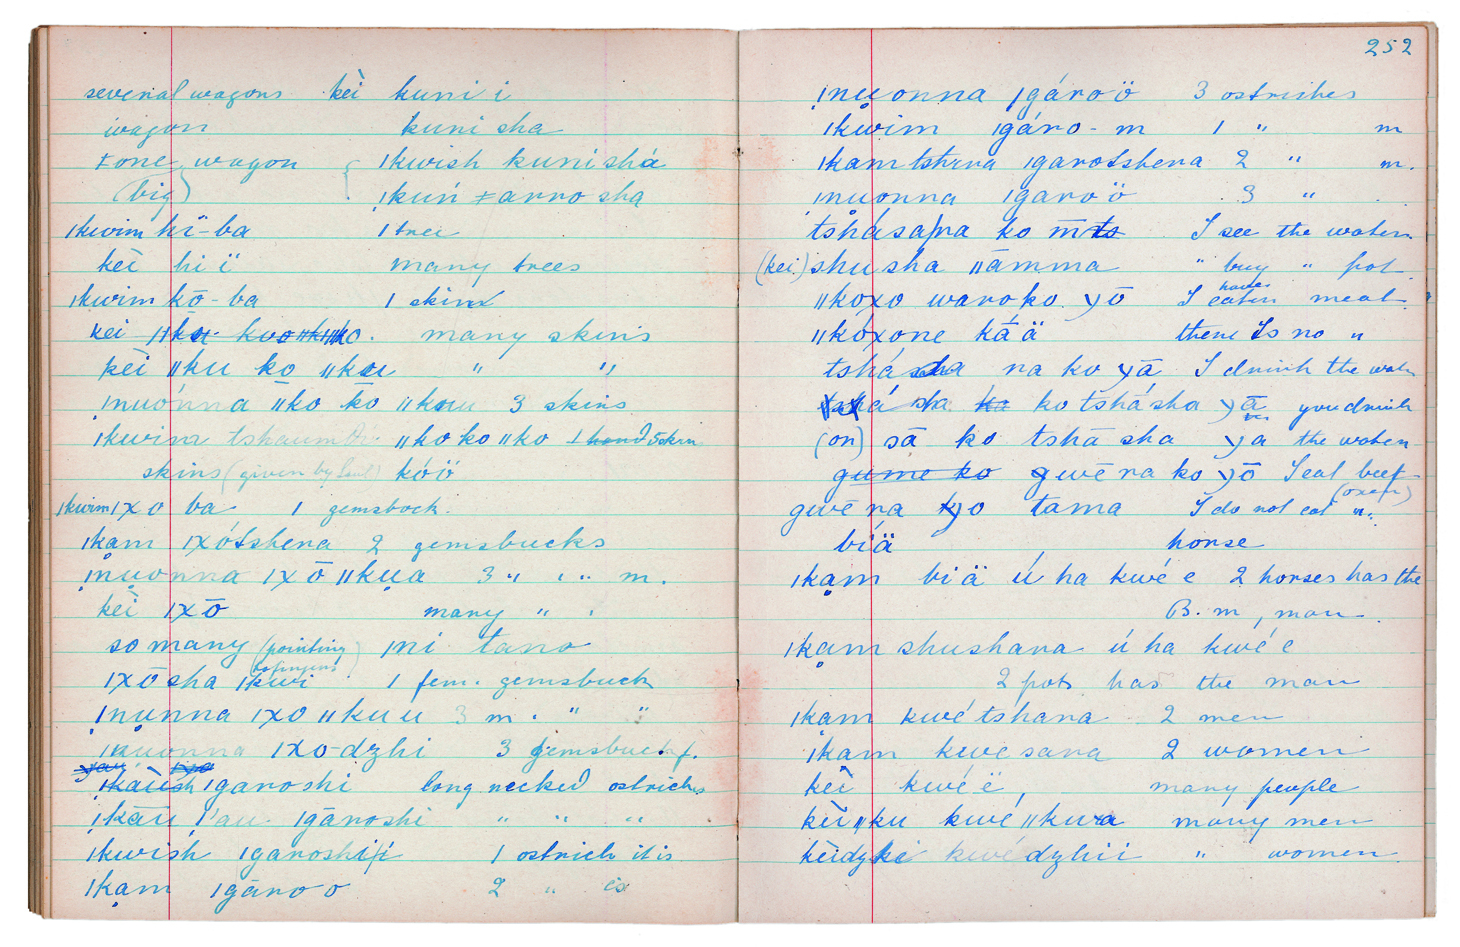 several wagons kèi kuni i
wagon kuni sha
ǂone wagon ǀkwish kunishá
(big) ǀkuń ǂarro sha
ǀkwim hī-ba 1 tree
kèi hi ï many trees
ǀkwim kō-ba 1 skin
kei many skins
kèi ǁku ko ǁkau " "
ǀnuónna ǁko ko ǁkuu 3 skins
ǀkwira tshaum ǁko ko ǁko 1 hand 5 skin
skins (given by Saul) kóö
ǀkwim ǀxo ba 1 gemsbock.
ǀkam ǀxótshena 2 gemsbucks
ǀnuonna ǀxō ǁkua 3 " " m.
kèi ǀxō many "
so many (pointing to fingers) ǀni tano
ǀxōsha ǀkwi 1 fem. gemsbuck
ǀnunna ǀxo ǁkuu 3 m. " "
ǀnuonna ǀxo-dzhi 3 gemsbuck f.
ǀkauish ǀgaroshi long necked ostriches
ǀkāu ǀ'au ǀgāroshi " " "
ǀkwish ǀgaroshi 1 ostrich it is
ǀkam ǀgāro o 2 "
252
ǀnuonna ǀgároö 3 ostriches
ǀkwim ǀgáro-m 1 " m
ǀkam ǀgarotshena 2 " m.
ǀnuonna ǀgaroö 3 "
tshásara ko m̄ to I see the water.
(kei) shusha ǁāmma " buy " pot
ǁkoxo waroko yō I have eaten meat
ǁkóxone káä there is no "
tshá sha na ko yā I drink the water
tshá sha ka ko tshásha yā you drink
(or) sā ko tshā sha ya the water
gume ko gwē ra ko yō I eat beef
(oxen)
gwē ra yo tama I do not eat ".
bíä horse
ǀkam biä ú ha kwé e 2 horses has the
B. m, man.
ǀkam shushara ú ha kwé e
2 pots has the man
ǀkam kwé tshara 2 men
ǀkam kwé sara 2 women
kèi kwé ë, many people
kèi ǁku kwé ǁkwa many men
kèidzhi kwé dzhii " women